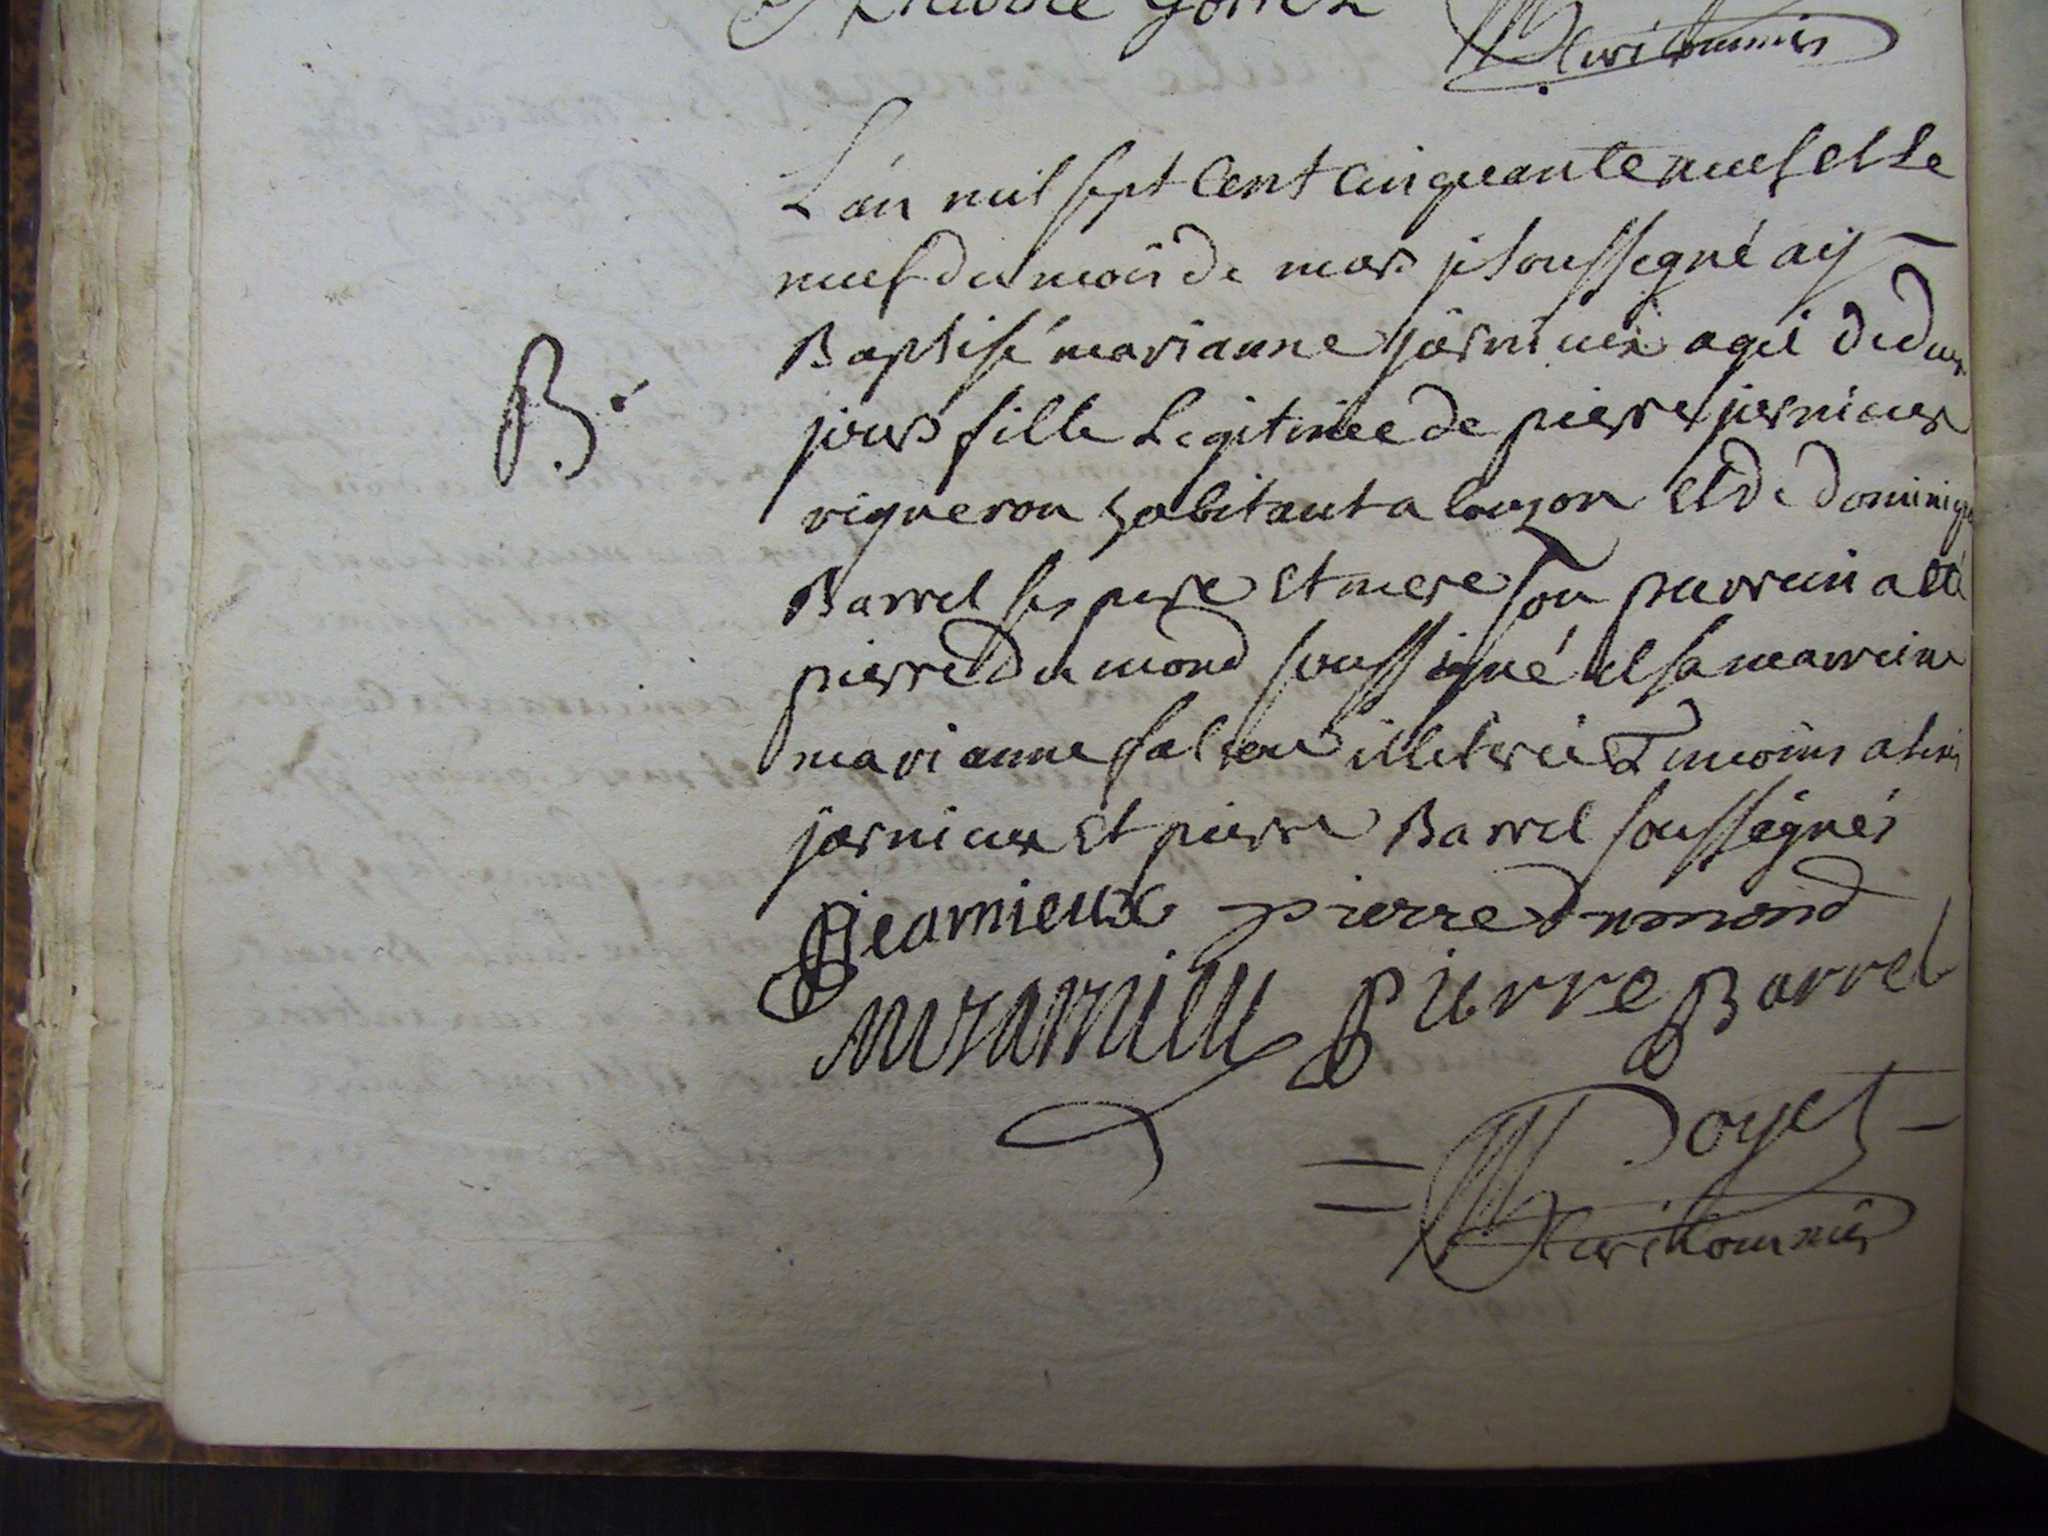 L'an mil sept Cent Cinquante neuf et le
neuf du mois de mars je soussigné aÿ
B. Baptisé marianne jarnieux agée de deux
jours fille Legitimee de pierre jarnieux
vigneron habitant a lauzon et de dominique
Barrel ses pere et mere son parrein a été
pierre dumond soussigné et sa marreine
marianne illiterée temoins
jarnieux et pierre Barrel soussignés
jearnieux pierre dumond
pierre Barrel
Poyet